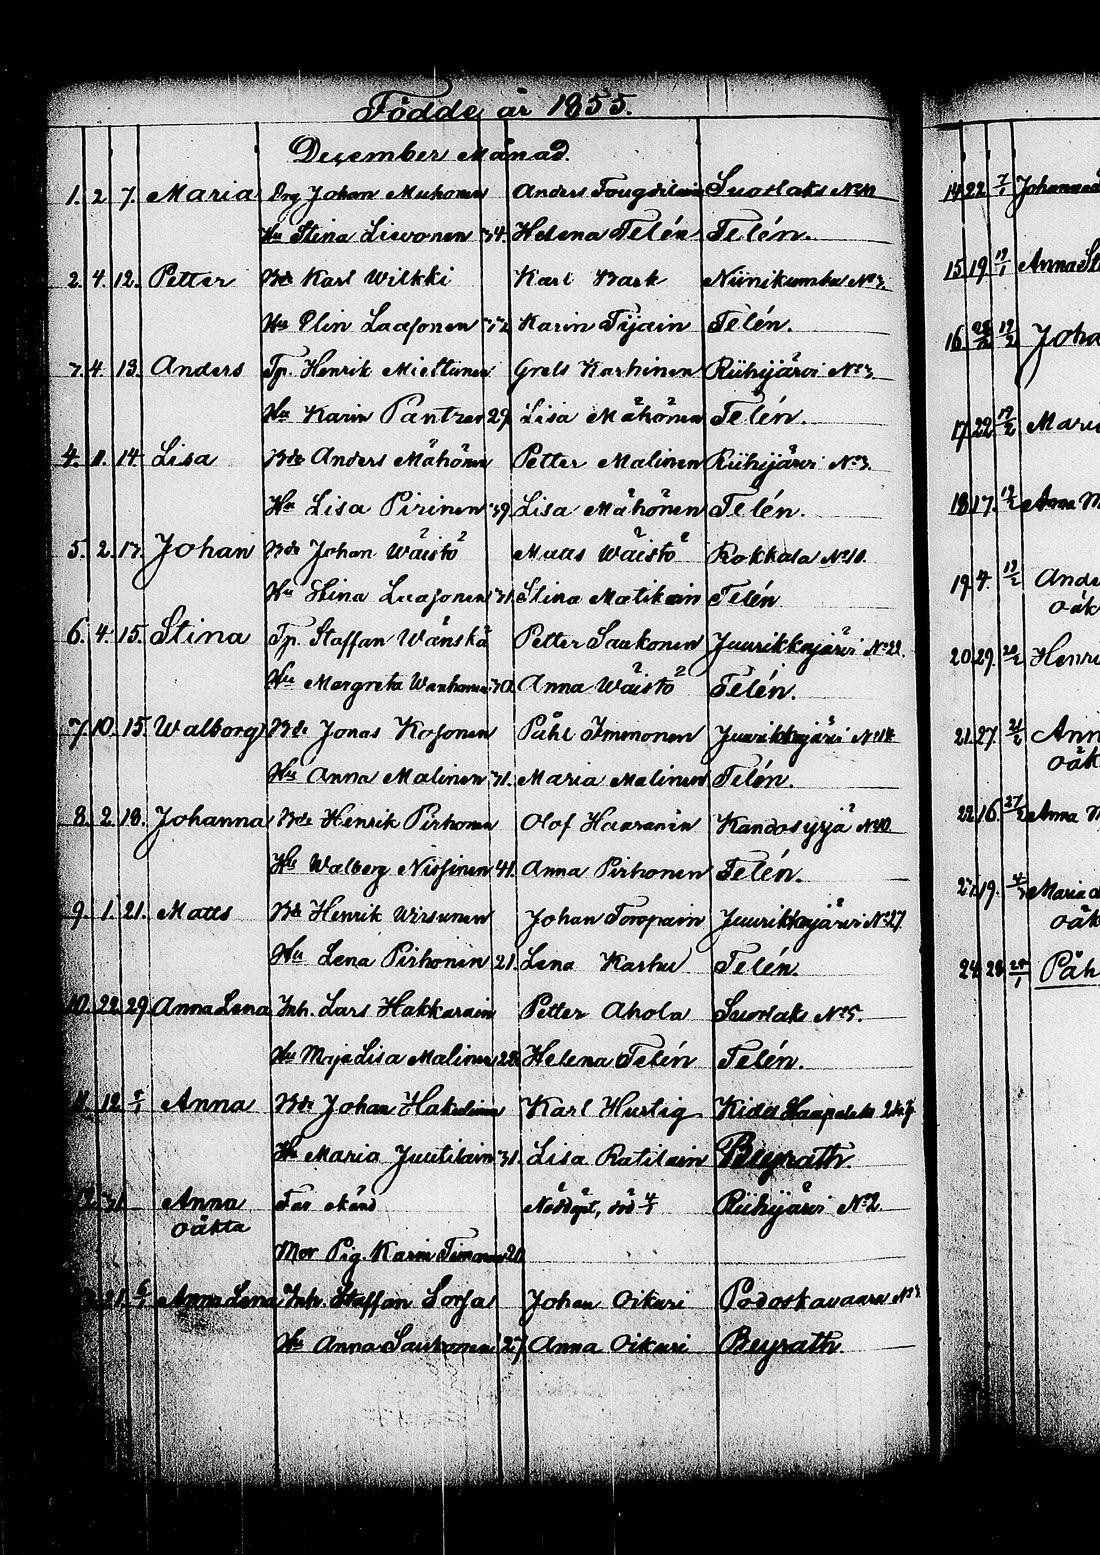 Födde år 1855.
December Månad.
1. 2. 7. Maria Drg Johan Muhonen Anders Suotlaks No
Hu Stina Liwonen 34. Helena Telén Telén.
2. 4. 12. Petter Bde Karl Wilkki Karl Bark Niinikumbu No 3.
Hu Elin Laasonen 32 Karin Tijain Telén.
3. 4. 13. Anders Tp. Henrik Miettinen Grels Karhinen Riihijärvi No 3.
Hu Karin Pantzer 29. Lisa Mähönen Telén.
4. 11. 14. Lisa Bde Anders Mähönen Petter Malinen Riihijärvi No 3.
Hu Lisa Pirinen 39. Lisa Mähönen Telén.
5. 2. 17. Johan Bde Johan Wäistö Matts Wäistö Kokkala No 10.
Hu Stina Laasonen 31. Stina Matikain Telén
6. 4. 15. Stina Tp. Staffan Wänskä Petter Saukonen Juurikkajärvi No 22.
Hu Margreta Wanhanen 30. Anna Wäistö Telén.
7. 10. 15. Walborg Bde Jonas Kosonen Påhl Immonen Juurikkajärvi No 14
Hu Anna Malinen 31. Maria Malinen Telén.
8. 2. 18. Johanna Bde Henrik Pirhonen Olof Haaranin Kandosyyjä No 10.
Hu Walborg Nissinen 41. Anna Pirhonen Telén.
9. 1. 21. Matts Bde Henrik Wirsunen Johan Toropain Juurikkajärvi No 27.
Hu Lena Pirhonin 21. Lena Karhu Telén.
10. 22. 29. Anna Lena Inh. Lars Hakkarain Petter Ahola Suotlaks No 5.
Hu Maja Lisa Malinen 28. Helena Telén Telén.
11. 12. Anna Bde Johan Hakulinen Karl Hurtig Kides Haapalaks
Hu Maria Juutilain 31. Lisa Ratilain Beyrath.
12. 31. Anna Far okänd Nöddöpt, död 4/1 Riihijärvi No 2.
oäkta
Mor Pig. Karin Timonen 20.
21. 6/1 Anna Lena Inh. Staffan Sorsa Johan Oikari Podoskavaara No
Hu Anna Saukonen 27. Anna Oikari Beyrath
14 22 7/1
15 19 Anna
16
17 22 Mari
18 17.
19 4.
oäk
20 29. Henri
21 27. Ann
oäk
22 16. Anna M
19. Maria
oäk
24 28 Påh